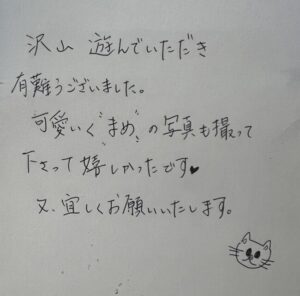 沢山 遊んでいただき
有難うございました。
可愛いく"まめ"の写真も撮って
下さって嬉しかったです♥
又、宜しくお願いいたします。